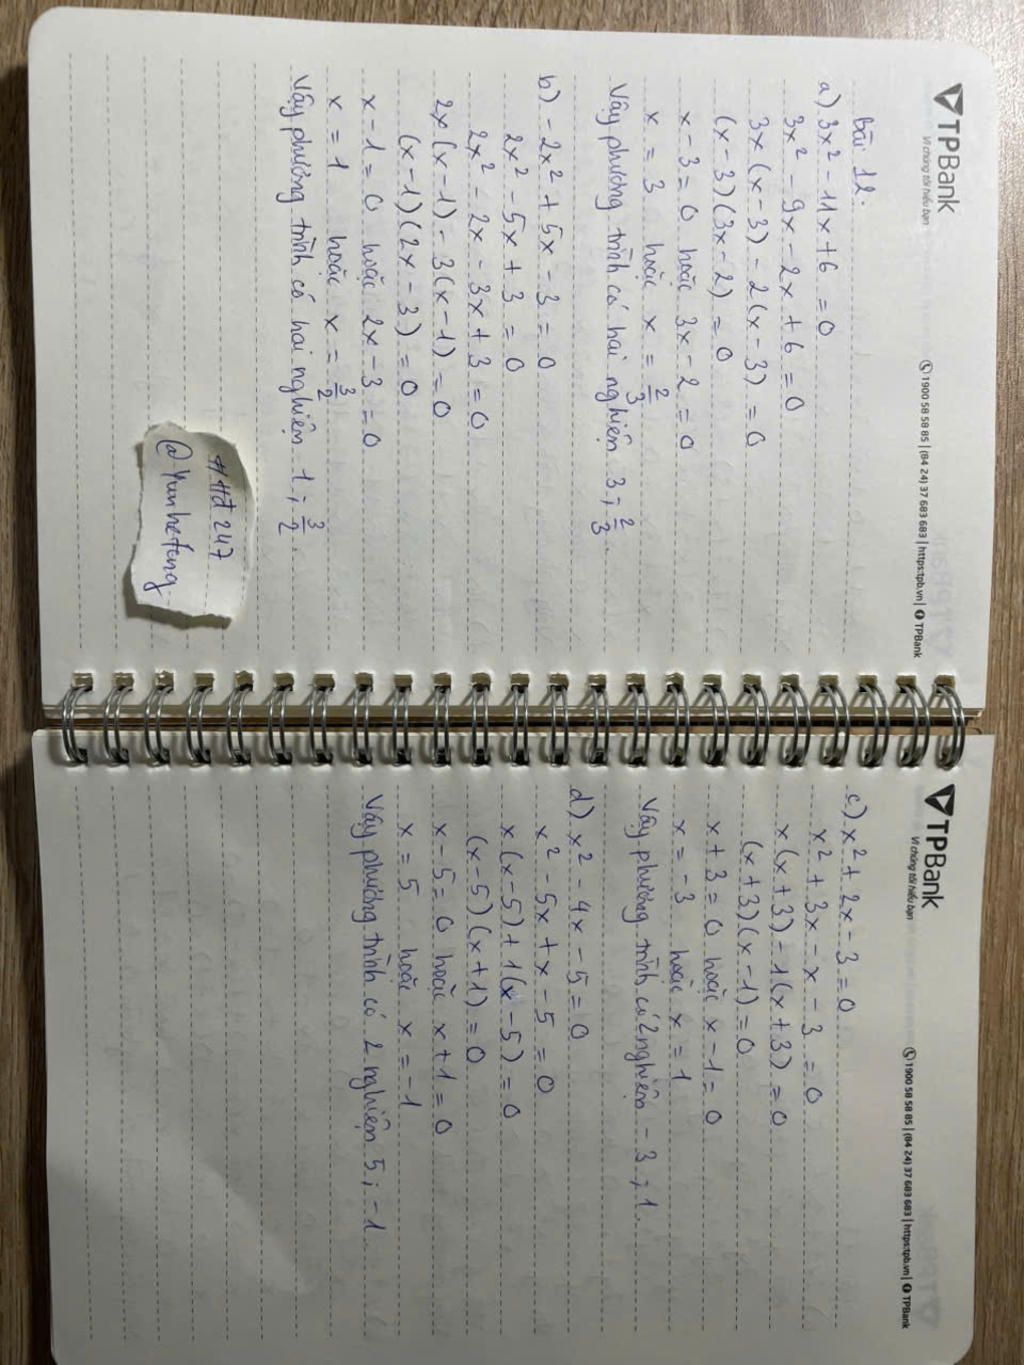 TPBank
Vì chúng tôi hiểu bạn
1900 58 58 85 | (84 24) 37 683 683 | https:tpb.vn | TPBank
Bài 12.
a) 3x² - 11x + 6 = 0
3x² - 9x - 2x + 6 = 0
3x (x - 3) - 2 (x - 3) = 0
(x - 3) (3x - 2) = 0
x - 3 = 0 hoặc 3x - 2 = 0
x = 3 hoặc x = 2/3
Vậy phương trình có hai nghiệm 3 ; 2/3.
b) - 2x² + 5x - 3 = 0
2x² - 5x + 3 = 0
2x² - 2x - 3x + 3 = 0
2x (x - 1) - 3 (x - 1) = 0
(x - 1) (2x - 3) = 0
x - 1 = 0 hoặc 2x - 3 = 0
x = 1 hoặc x = 3/2
Vậy phương trình có hai nghiệm 1 ; 3/2.
#Hđ247
@Yunhetang
TPBank
Vì chúng tôi hiểu bạn
1900 58 58 85 | (84 24) 37 683 683 | https:tpb.vn | TPBank
c) x² + 2x - 3 = 0
x² + 3x - x - 3 = 0
x (x + 3) - 1 (x + 3) = 0
(x + 3) (x - 1) = 0
x + 3 = 0 hoặc x - 1 = 0
x = - 3 hoặc x = 1
Vậy phương trình có 2 nghiệm - 3 ; 1.
d) x² - 4x - 5 = 0
x² - 5x + x - 5 = 0
x (x - 5) + 1 (x - 5) = 0
(x - 5) (x + 1) = 0
x - 5 = 0 hoặc x + 1 = 0
x = 5 hoặc x = -1
Vậy phương trình có 2 nghiệm 5 ; -1